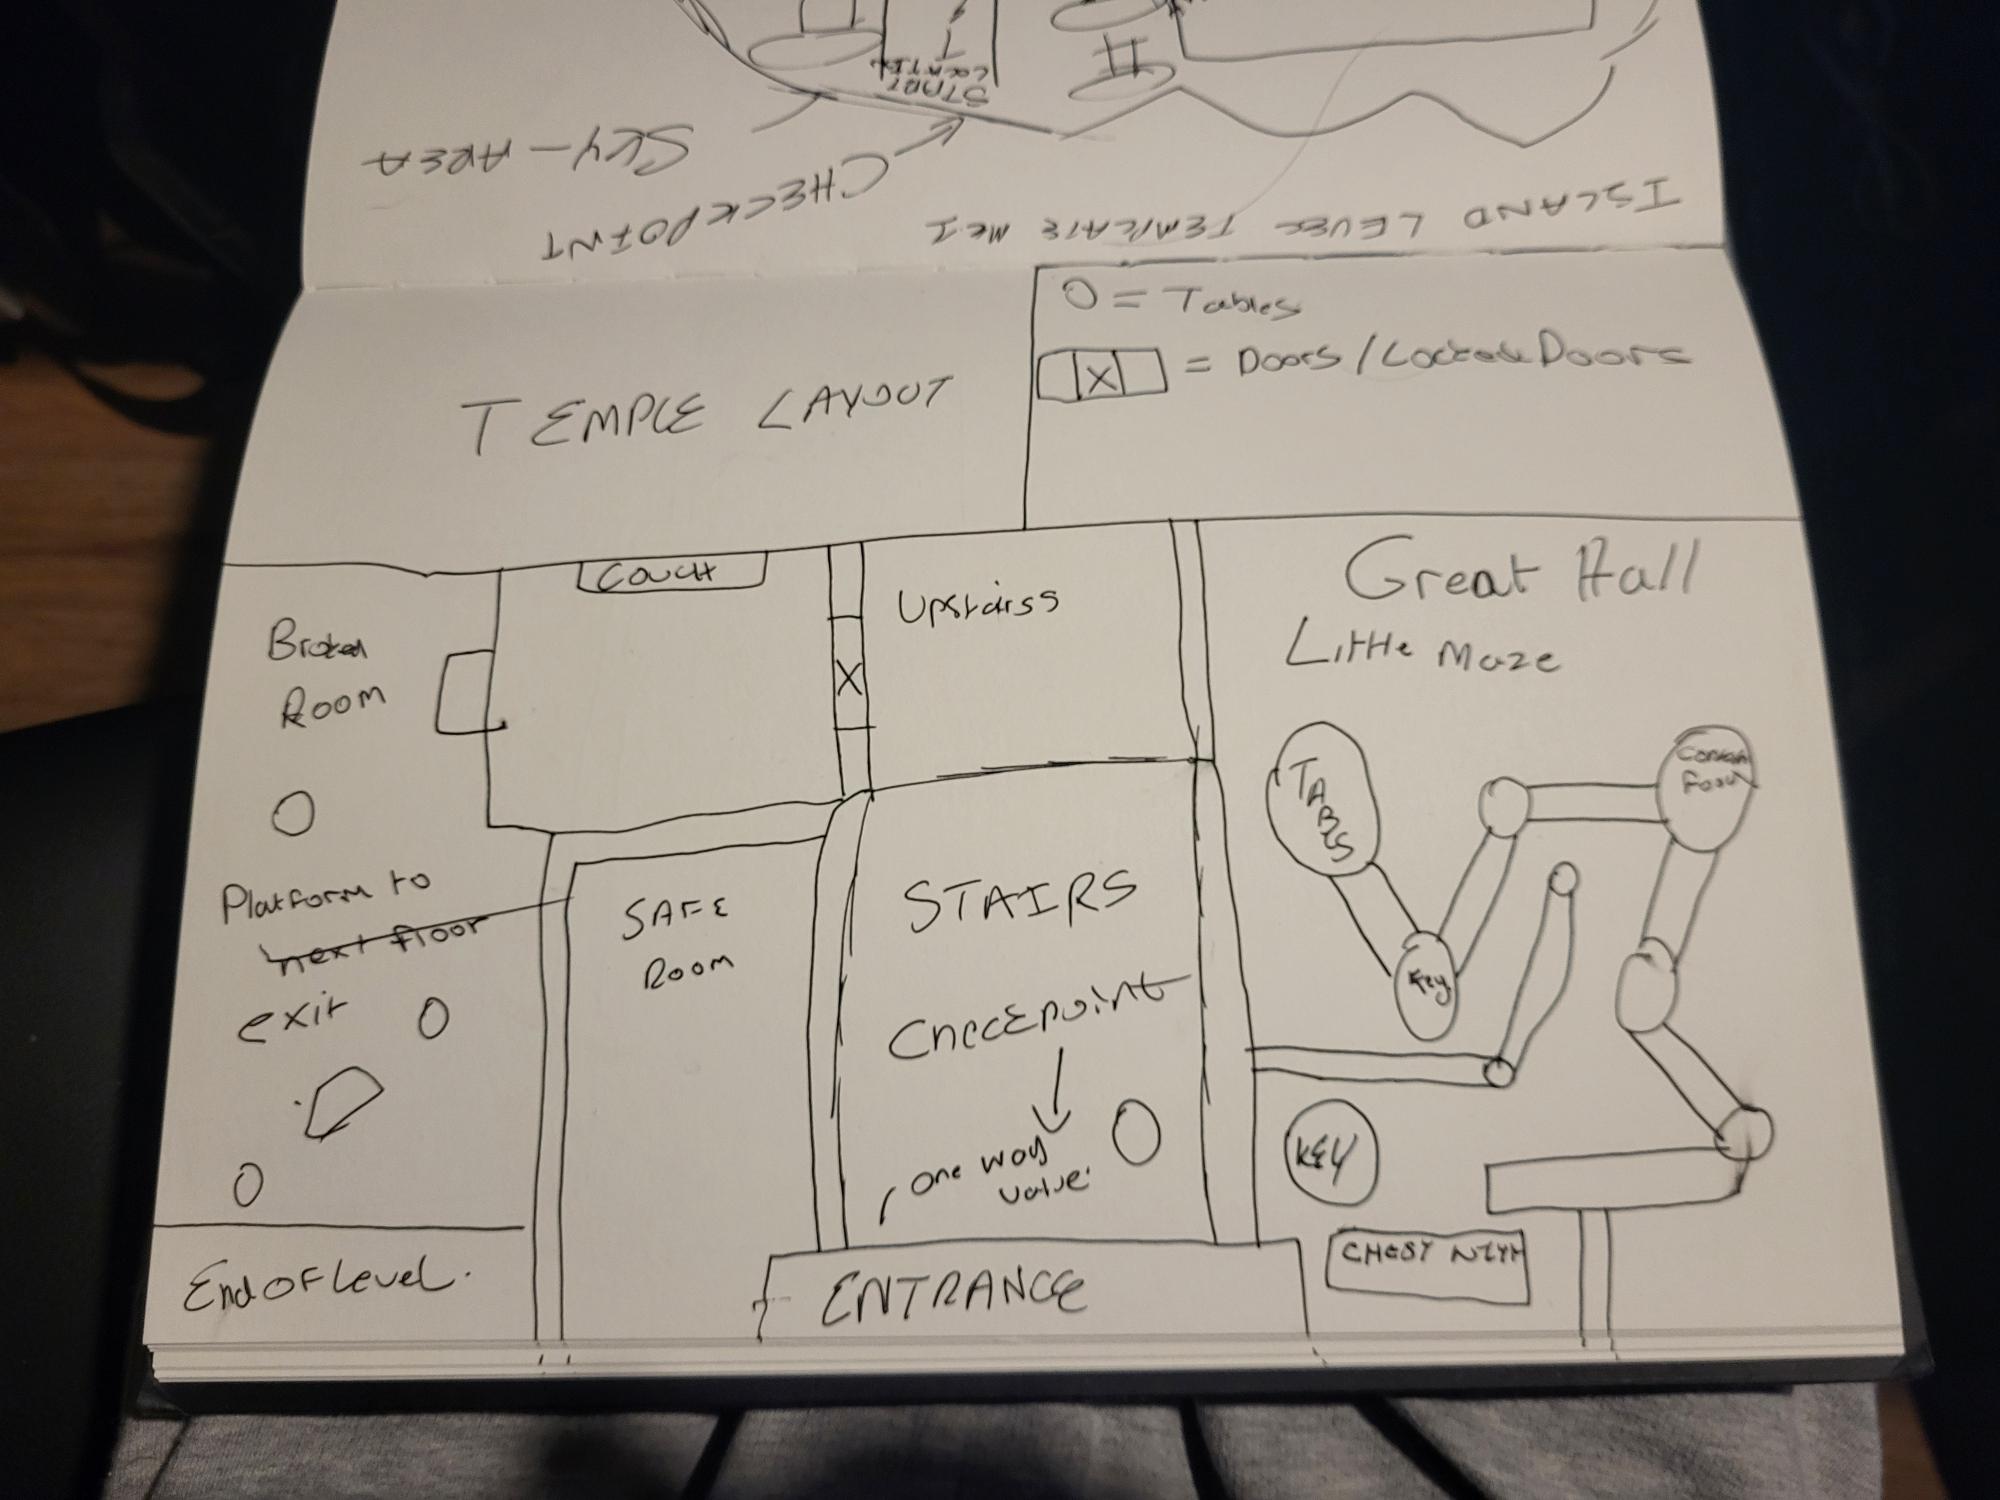 START
LOCATI
SKY-AREA
CHECKPOINT
ISLAND LEVEL TEMPLATE
TEMPLE LAYOUT
O = Tables
X = Doors / Locked Doors
COUCH
Upstairss
Great Hall
Little Maze
Broken
Room
X
TABS
Key
Platform to
next floor
exit
SAFE
ROOM
STAIRS
Checkpoint
one way
value
KEY
End OF Level.
ENTRANCE
CHEST